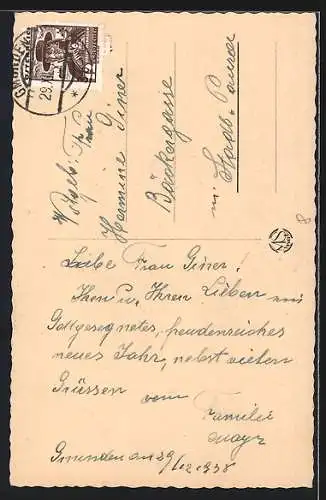 GMUNDEN
29.
Wohlgeb. Frau
Hermine Giner
Bäckergasse
in
Liebe Frau Giner!
Ihnen u. Ihren Lieben ein
Gottgesegnetes, freudenreiches
neues Jahr, nebst vielen
Grüssen vom
Familie
Mayr
Gmunden am 29/12 1938
8